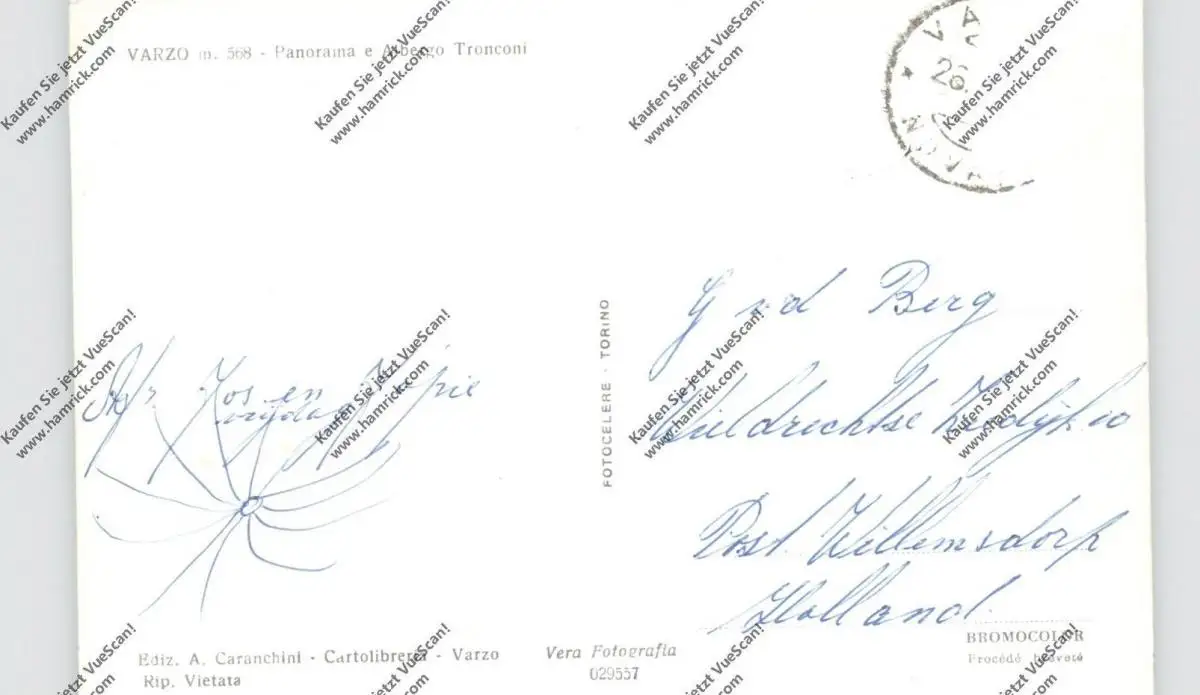 VARZO m. 568 - Panorama e Albergo Tronconi
VA
26.
Jos en Kopie
FOTOCELERE - TORINO
G v d Berg
Wieldrechtse Zeedijk
Post. Willemsdorp
Holland.
Ediz. A. Caranchini - Cartolibreria - Varzo
Rip. Vietata
Vera Fotografia
029557
BROMOCOLOR
Procédé breveté
Kaufen Sie jetzt VueScan!
www.hamrick.com
Kaufen Sie jetzt VueScan!
www.hamrick.com
Kaufen Sie jetzt VueScan!
www.hamrick.com
Kaufen Sie jetzt VueScan!
www.hamrick.com
Kaufen Sie jetzt VueScan!
www.hamrick.com
Kaufen Sie jetzt VueScan!
www.hamrick.com
Kaufen Sie jetzt VueScan!
www.hamrick.com
Kaufen Sie jetzt VueScan!
www.hamrick.com
Kaufen Sie jetzt VueScan!
www.hamrick.com
Kaufen Sie jetzt VueScan!
www.hamrick.com